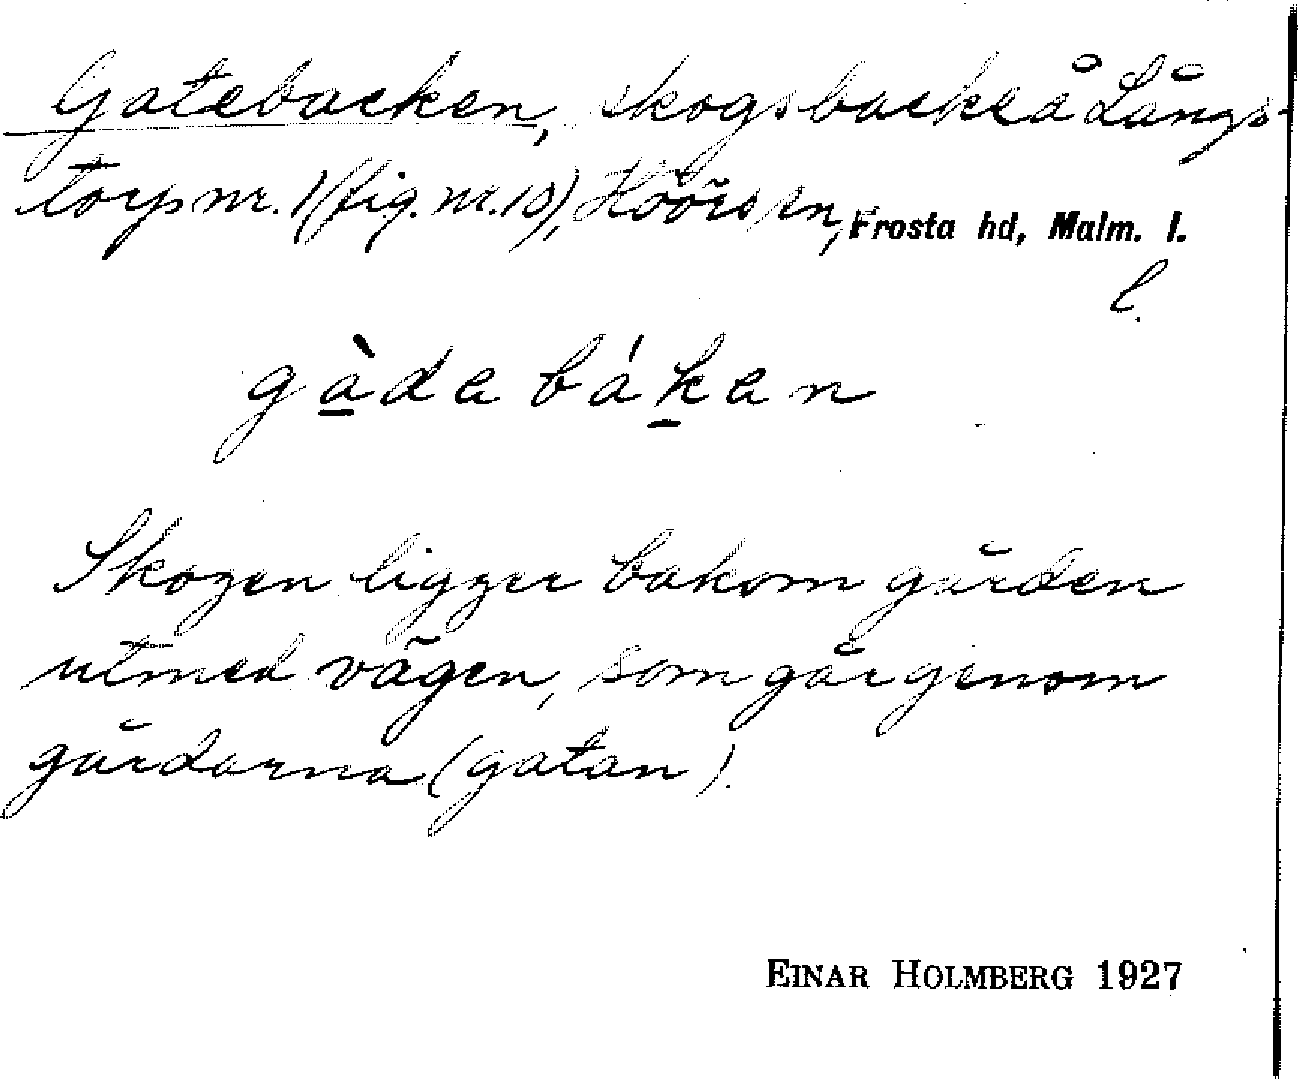 Gatebacken, skogsbacke å Långs-
torp nr. 1 (fig. nr. 10), Höörs sn, Frosta hd, Malm. l.
l.
gàdebáken
Skogen ligger bakom gården
utmed vägen, som går genom
gårdarna (gatan).
EINAR HOLMBERG 1927